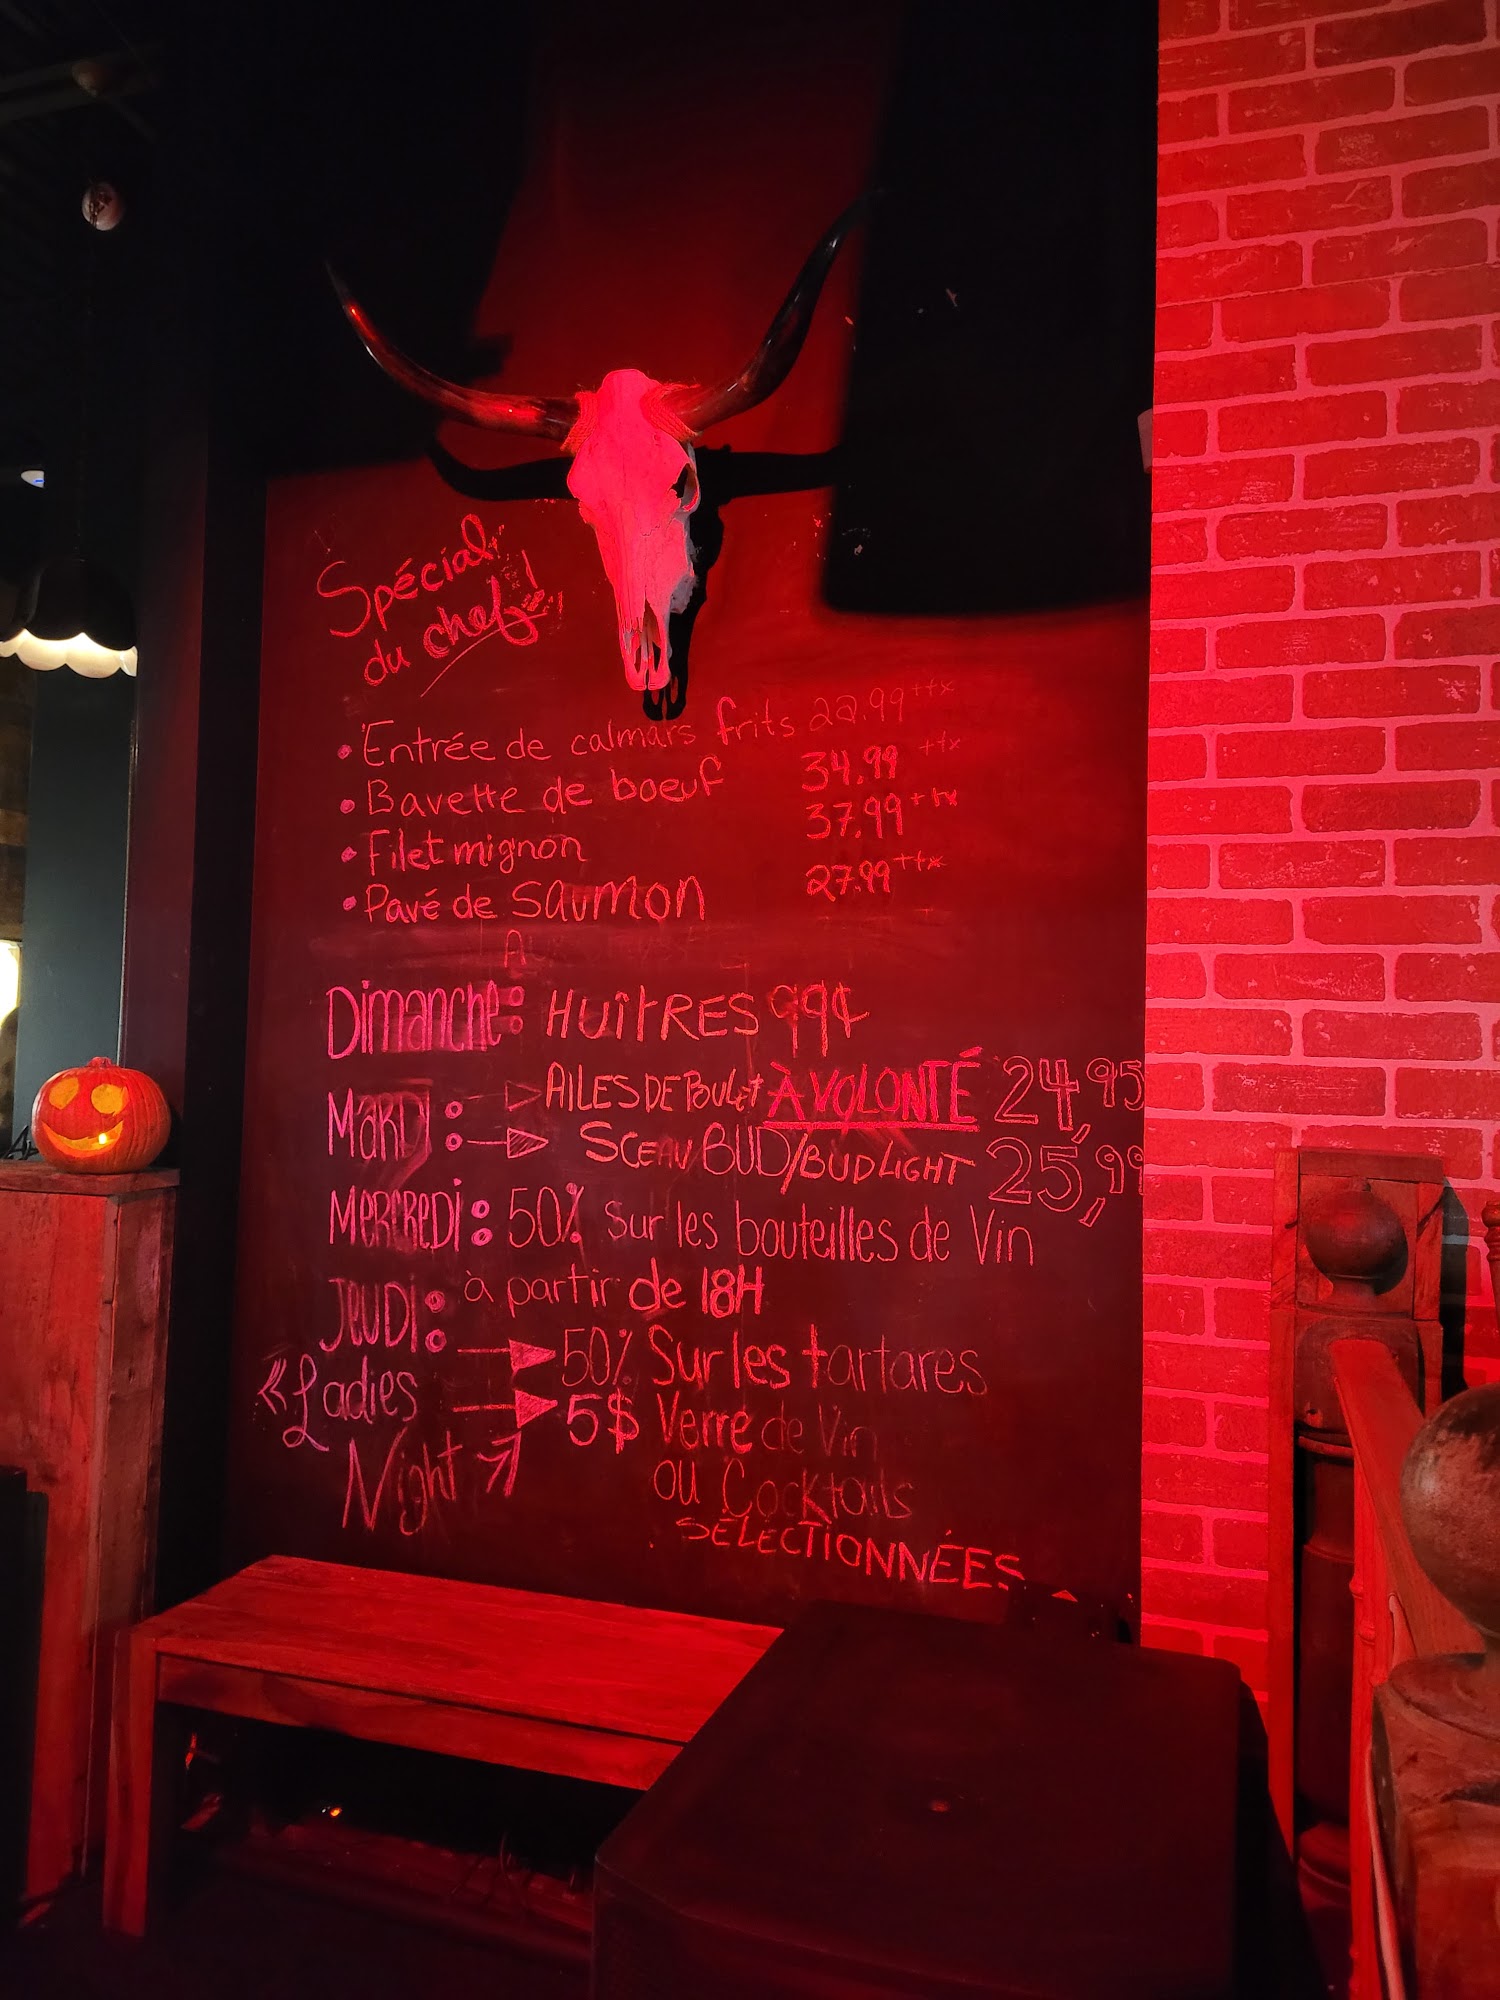 Spécial
du chef!
• Entrée de calmars frits 22.99 +tx
• Bavette de boeuf 34.99 +tx
• Filet mignon 37.99 +tx
• Pavé de saumon 27.99 +tx
Dimanche: HUÎTRES 99¢
MARDI: AILES DE POULET À VOLONTÉ 24,95
SCEAU BUD/BUD LIGHT 25,99
MERCREDI: 50% sur les bouteilles de Vin
JEUDI: à partir de 18H
50% Sur les tartares
«Ladies
5$ Verre de Vin
Night
ou Cocktails
SÉLECTIONNÉES